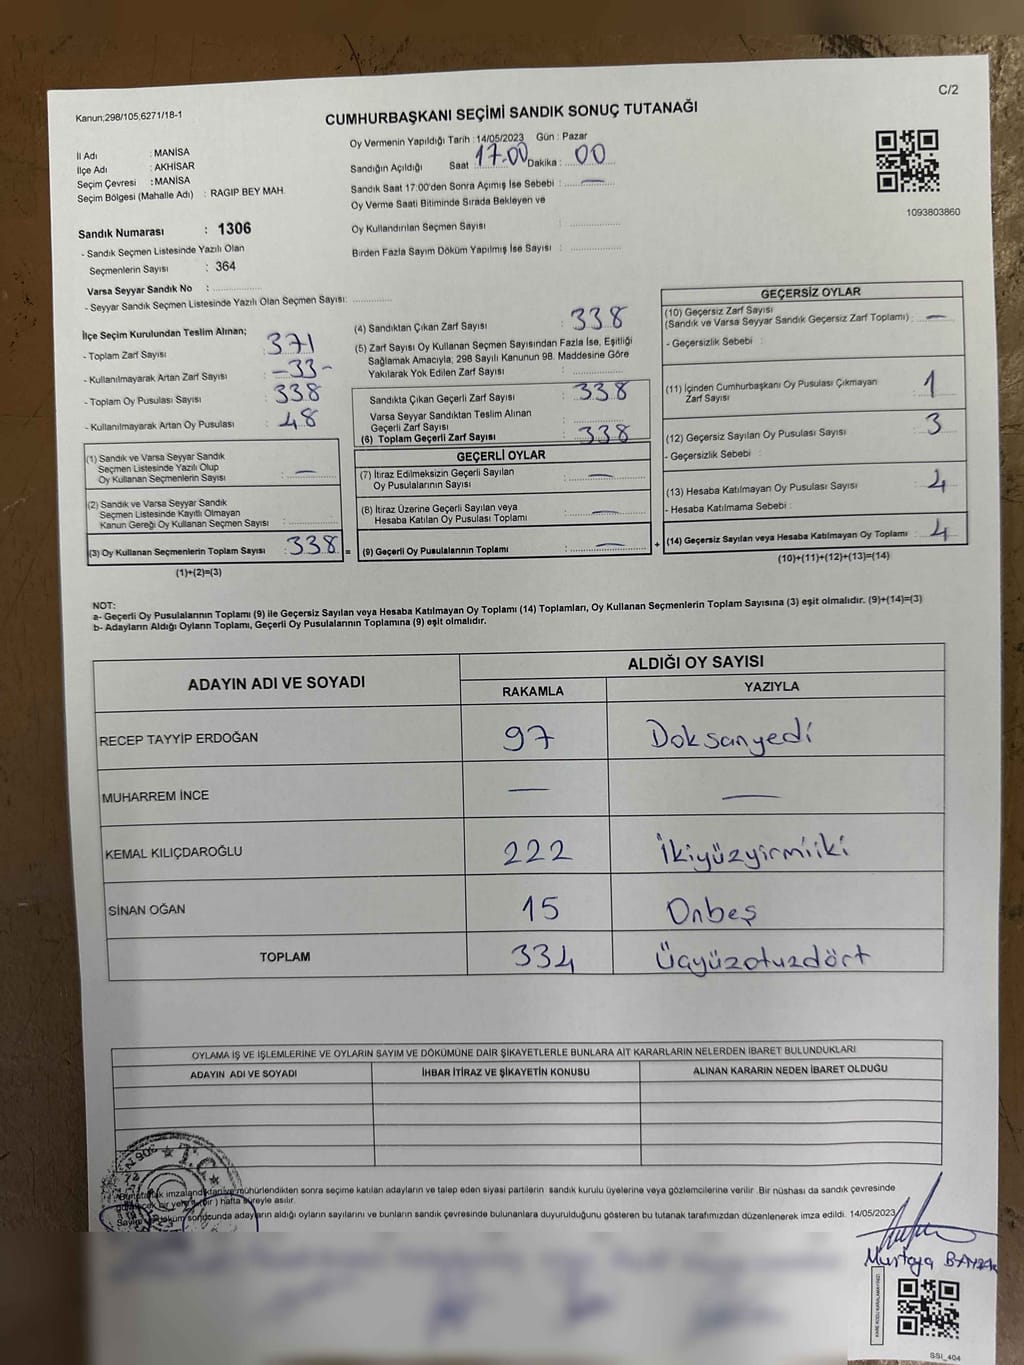 C/2
Kanun;298/105,6271/18-1
CUMHURBAŞKANI SEÇİMİ SANDIK SONUÇ TUTANAĞI
İl Adı : MANİSA
İlçe Adı : AKHİSAR
Seçim Çevresi : MANİSA
Seçim Bölgesi (Mahalle Adı) : RAGIP BEY MAH.
Sandık Numarası : 1306
- Sandık Seçmen Listesinde Yazılı Olan
Seçmenlerin Sayısı : 364
Varsa Seyyar Sandık No :
- Seyyar Sandık Seçmen Listesinde Yazılı Olan Seçmen Sayısı:
Oy Vermenin Yapıldığı Tarih : 14/05/2023 Gün : Pazar
Sandığın Açıldığı Saat : 17.00 Dakika : 00
Sandık Saat 17:00'den Sonra Açımış İse Sebebi : —
Oy Verme Saati Bitiminde Sırada Bekleyen ve
Oy Kullandırılan Seçmen Sayısı :
Birden Fazla Sayım Döküm Yapılmış İse Sayısı :
1093803860
İlçe Seçim Kurulundan Teslim Alınan;
- Toplam Zarf Sayısı : 371
- Kullanılmayarak Artan Zarf Sayısı : -33-
- Toplam Oy Pusulası Sayısı : 338
- Kullanılmayarak Artan Oy Pusulası : 48
(1) Sandık ve Varsa Seyyar Sandık
Seçmen Listesinde Yazılı Olup
Oy Kullanan Seçmenlerin Sayısı : —
(2) Sandık ve Varsa Seyyar Sandık
Seçmen Listesinde Kayıtlı Olmayan
Kanun Gereği Oy Kullanan Seçmen Sayısı :
(3) Oy Kullanan Seçmenlerin Toplam Sayısı : 338 =
(1)+(2)=(3)
(4) Sandıktan Çıkan Zarf Sayısı : 338
(5) Zarf Sayısı Oy Kullanan Seçmen Sayısından Fazla İse, Eşitliği
Sağlamak Amacıyla, 298 Sayılı Kanunun 98. Maddesine Göre
Yakılarak Yok Edilen Zarf Sayısı :
Sandıkta Çıkan Geçerli Zarf Sayısı : 338
Varsa Seyyar Sandıktan Teslim Alınan
Geçerli Zarf Sayısı :
(6) Toplam Geçerli Zarf Sayısı : 338
GEÇERLİ OYLAR
(7) İtiraz Edilmeksizin Geçerli Sayılan
Oy Pusulalarının Sayısı : —
(8) İtiraz Üzerine Geçerli Sayılan veya
Hesaba Katılan Oy Pusulası Toplamı : —
(9) Geçerli Oy Pusulalarının Toplamı : — +
GEÇERSİZ OYLAR
(10) Geçersiz Zarf Sayısı
(Sandık ve Varsa Seyyar Sandık Geçersiz Zarf Toplamı) : —
- Geçersizlik Sebebi :
(11) İçinden Cumhurbaşkanı Oy Pusulası Çıkmayan
Zarf Sayısı : 1
(12) Geçersiz Sayılan Oy Pusulası Sayısı : 3
- Geçersizlik Sebebi :
(13) Hesaba Katılmayan Oy Pusulası Sayısı : 4
- Hesaba Katılmama Sebebi :
(14) Geçersiz Sayılan veya Hesaba Katılmayan Oy Toplamı : 4
(10)+(11)+(12)+(13)=(14)
NOT:
a- Geçerli Oy Pusulalarının Toplamı (9) ile Geçersiz Sayılan veya Hesaba Katılmayan Oy Toplamı (14) Toplamları, Oy Kullanan Seçmenlerin Toplam Sayısına (3) eşit olmalıdır. (9)+(14)=(3)
b- Adayların Aldığı Oyların Toplamı, Geçerli Oy Pusulalarının Toplamına (9) eşit olmalıdır.
ADAYIN ADI VE SOYADI ALDIĞI OY SAYISI
RAKAMLA YAZIYLA
RECEP TAYYİP ERDOĞAN 97 Doksanyedi
MUHARREM İNCE — —
KEMAL KILIÇDAROĞLU 222 İkiyüzyirmiiki
SİNAN OĞAN 15 Onbeş
TOPLAM 334 Üçyüzotuzdört
OYLAMA İŞ VE İŞLEMLERİNE VE OYLARIN SAYIM VE DÖKÜMÜNE DAİR ŞİKAYETLERLE BUNLARA AİT KARARLARIN NELERDEN İBARET BULUNDUKLARI
ADAYIN ADI VE SOYADI İHBAR İTİRAZ VE ŞİKAYETİN KONUSU ALINAN KARARIN NEDEN İBARET OLDUĞU
T.C.
mühürlendikten sonra seçime katılan adayların ve talep eden siyasi partilerin sandık kurulu üyelerine veya gözlemcilerine verilir .Bir nüshası da sandık çevresinde
hafta süreyle asılır.
sonucunda adayların aldığı oyların sayılarını ve bunların sandık çevresinde bulunanlara duyurulduğunu gösteren bu tutanak tarafımızdan düzenlenerek imza edildi. 14/05/2023
Mustafa
SSI_404